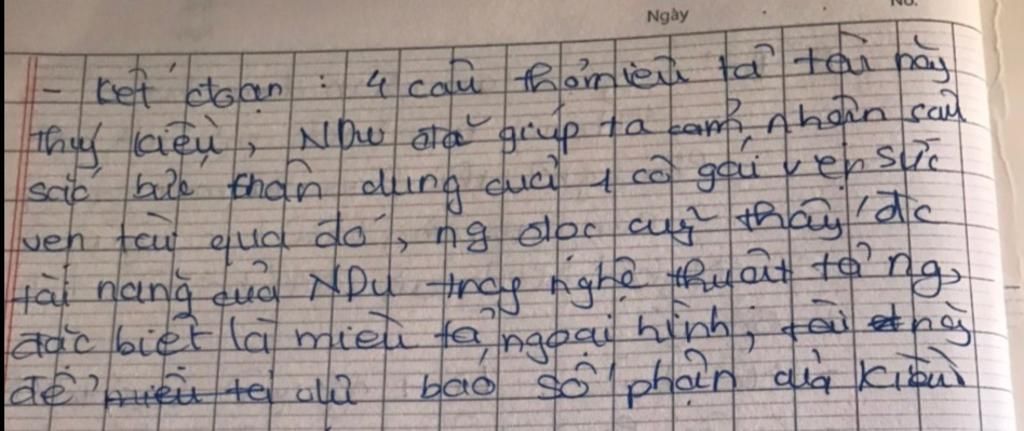 Ngày No.
- Kết đoạn : 4 câu thơ miêu tả tài này
Thuý Kiều, NDu đã giúp ta cảnh nhận sâu
sắc bức chân dung của 1 cô gái vẹn sắc
vẹn tài qua đó, ng đọc cũg thấy đc
tài năng của NDu trog nghệ thuật tả ng,
đặc biệt là miêu tả ngoại hình, tài này
để dự báo số phận của Kiều